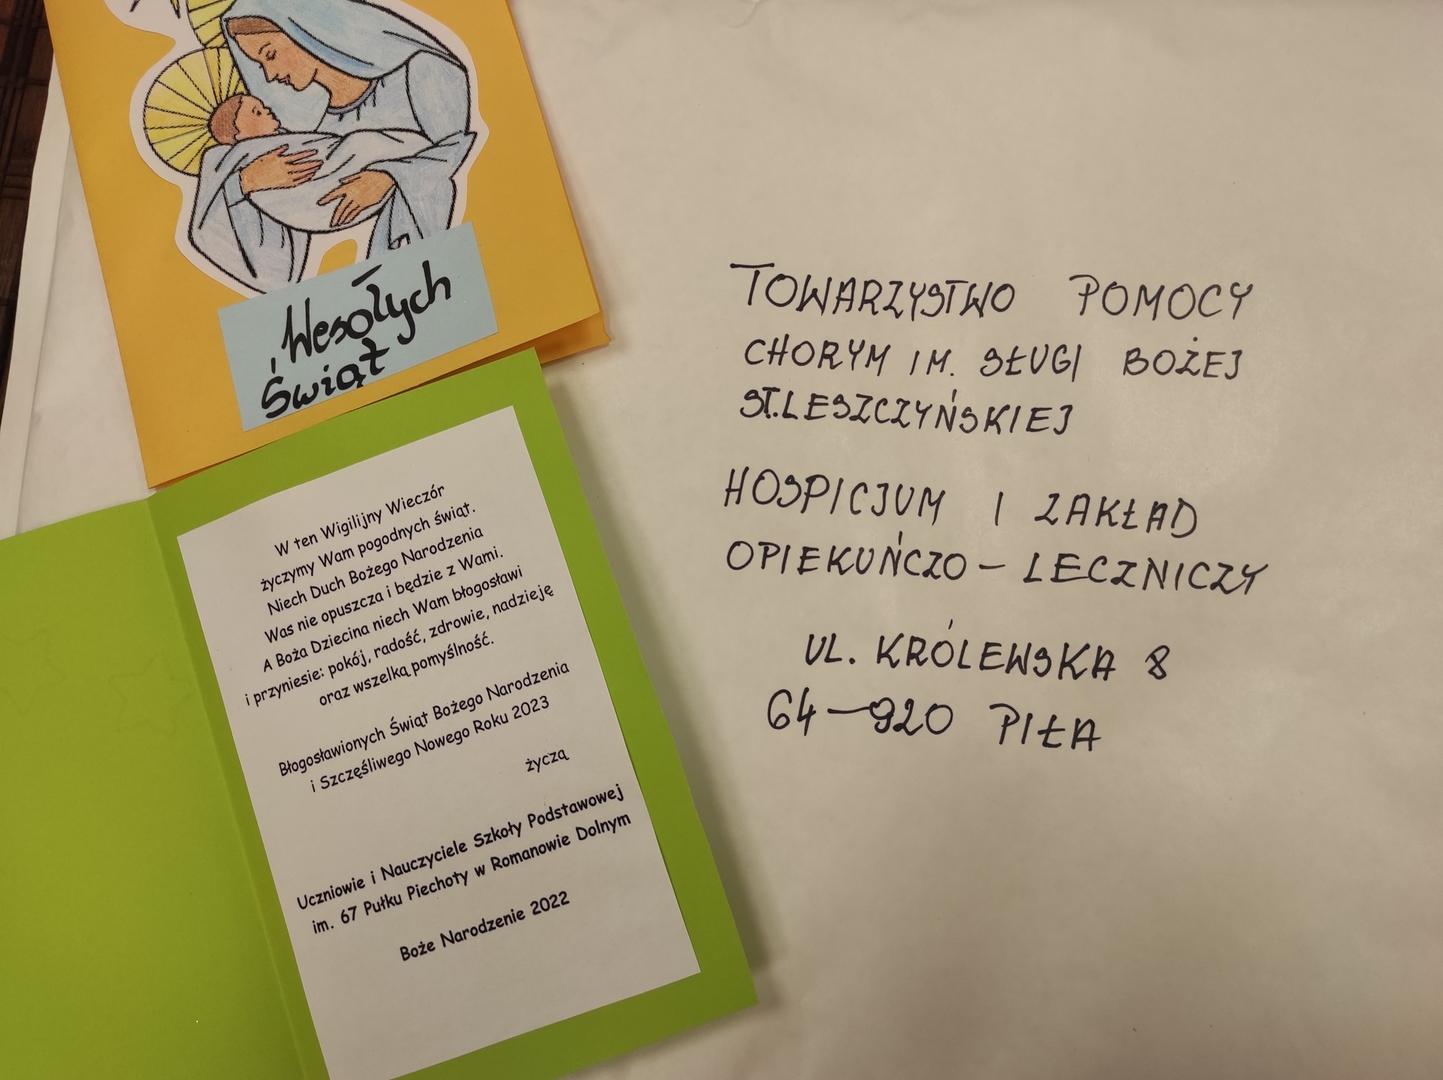 Wesołych
Świąt
W ten Wigilijny Wieczór
życzymy Wam pogodnych świąt.
Niech Duch Bożego Narodzenia
Was nie opuszcza i będzie z Wami.
A Boża Dziecina niech Wam błogosławi
i przyniesie: pokój, radość, zdrowie, nadzieję
oraz wszelką pomyślność.
Błogosławionych Świąt Bożego Narodzenia
i Szczęśliwego Nowego Roku 2023
życzą
Uczniowie i Nauczyciele Szkoły Podstawowej
im. 67 Pułku Piechoty w Romanowie Dolnym
Boże Narodzenie 2022
TOWARZYSTWO POMOCY
CHORYM IM. SŁUGI BOŻEJ
ST.LESZCZYŃSKIEJ
HOSPICJUM I ZAKŁAD
OPIEKUŃCZO - LECZNICZY
UL. KRÓLEWSKA 8
64-920 PIŁA